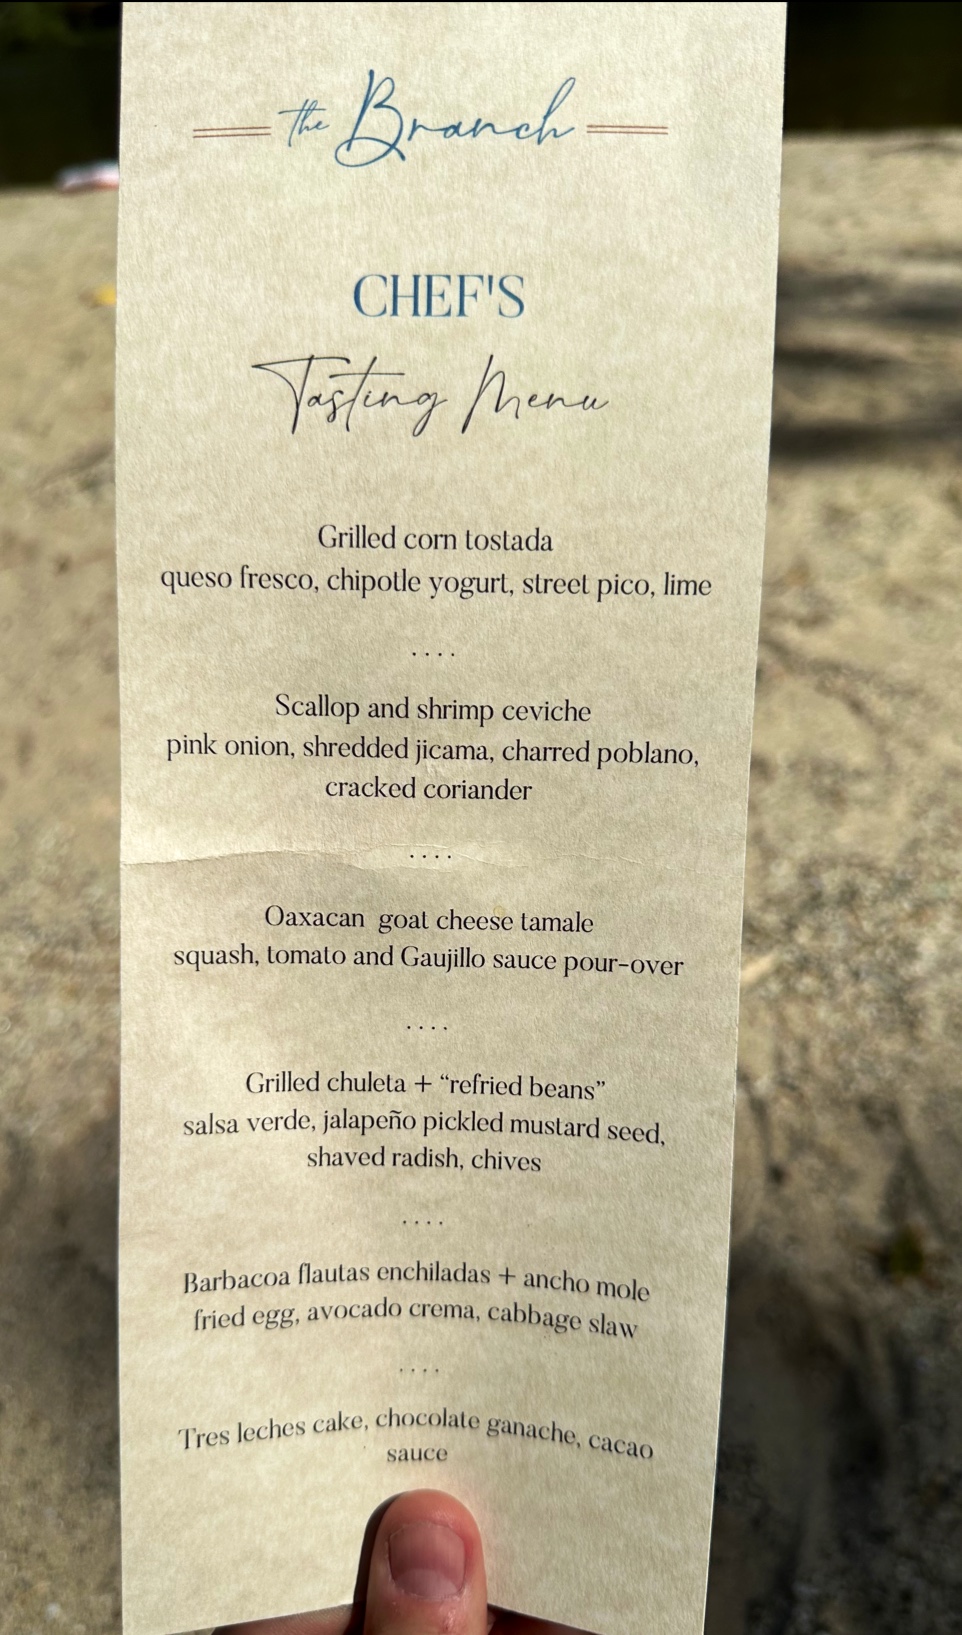 the Branch
CHEF'S
Tasting Menu
Grilled corn tostada
queso fresco, chipotle yogurt, street pico, lime
....
Scallop and shrimp ceviche
pink onion, shredded jicama, charred poblano,
cracked coriander
....
Oaxacan  goat cheese tamale
squash, tomato and Gaujillo sauce pour-over
....
Grilled chuleta + “refried beans”
salsa verde, jalapeño pickled mustard seed,
shaved radish, chives
....
Barbacoa flautas enchiladas + ancho mole
fried egg, avocado crema, cabbage slaw
....
Tres leches cake, chocolate ganache, cacao
sauce